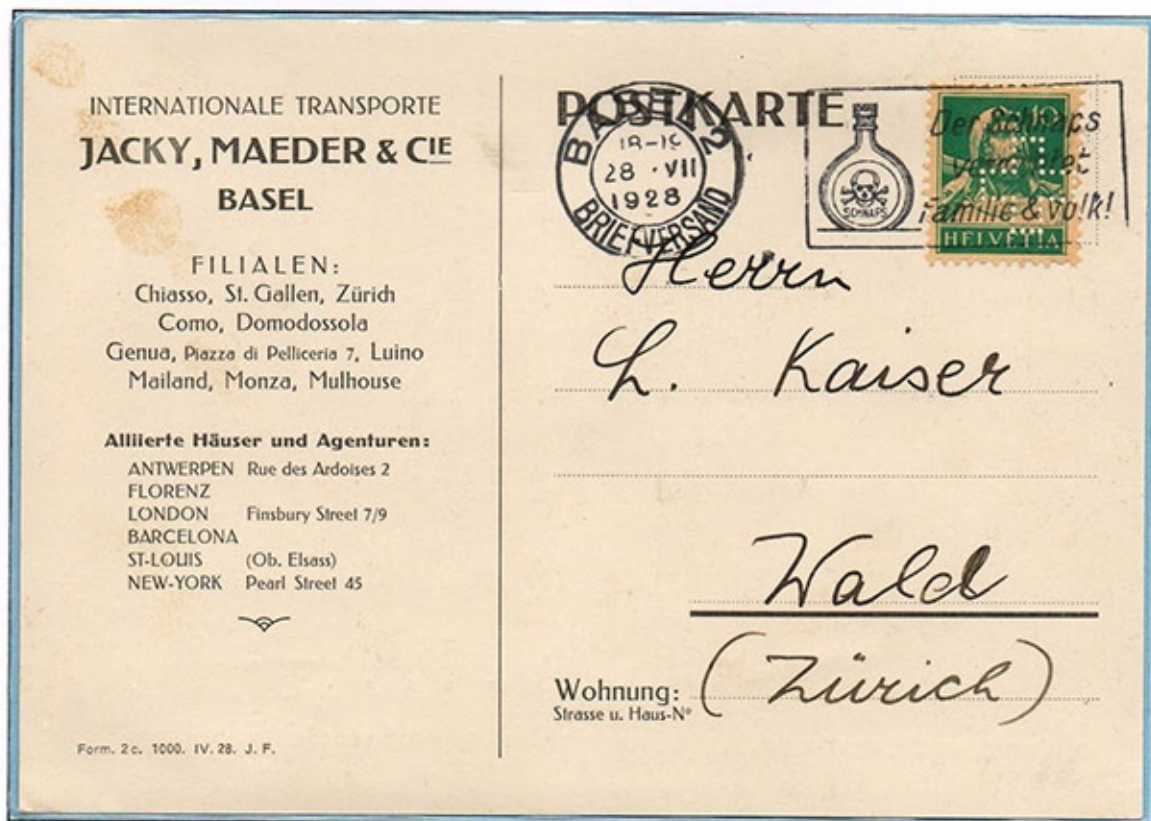 INTERNATIONALE TRANSPORTE
JACKY, MAEDER & CIE
BASEL
FILIALEN:
Chiasso, St. Gallen, Zürich
Como, Domodossola
Genua, Piazza di Pelliceria 7, Luino
Mailand, Monza, Mulhouse
Alliierte Häuser und Agenturen:
ANTWERPEN Rue des Ardoises 2
FLORENZ
LONDON Finsbury Street 7/9
BARCELONA
ST-LOUIS (Ob. Elsass)
NEW-YORK Pearl Street 45
Form. 2c. 1000. IV. 28. J. F.
POSTKARTE
BASEL 2
28 · VII
1928
BRIEFVERSAND
SCHNAPS
Der Schnaps
vernichtet
Familie & Volk!
10
HELVETIA
Herrn
L. Kaiser
Wald
(Zürich)
Wohnung:
Strasse u. Haus-Nº